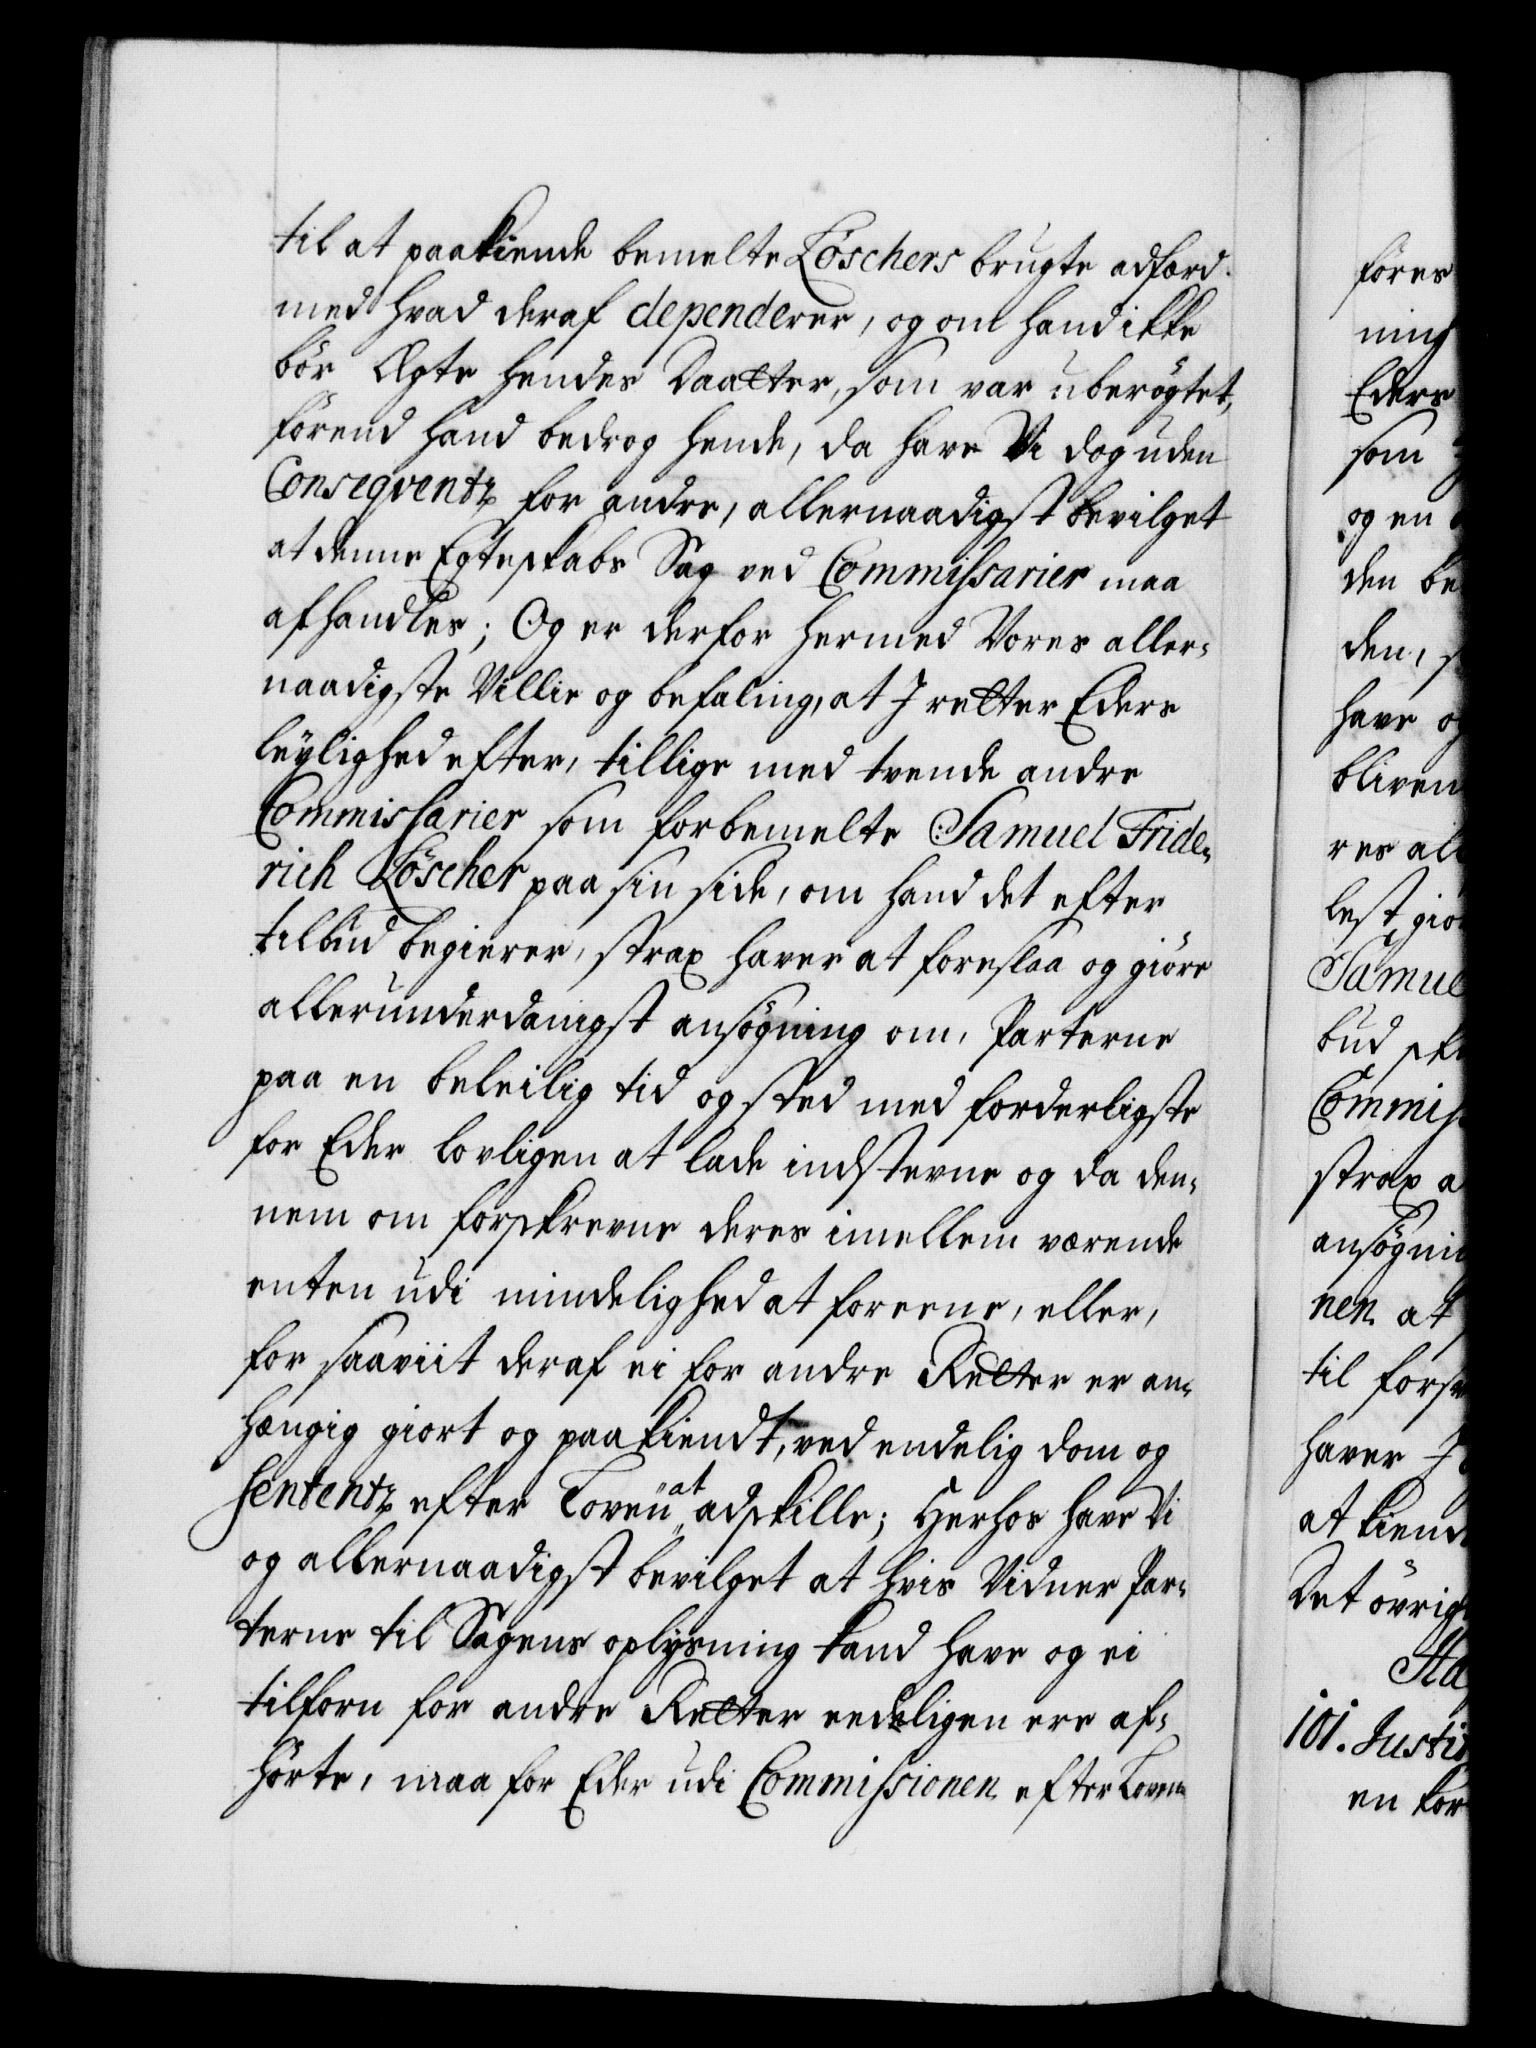 til at paakiende bemelte Löschers brugte adfærd.
med hvad deraf dependerer, og om hand ikke
bör Ægte hendes Daatter, som var uberögtet,
förend hand bedrog hende, da have Vi dog uden
Conseqventz for andre, allernaadigst bevilget
at denne Egteskabs Sag ved Commissarier maa
afhandles; Og er derfor hermed Vores aller-
naadigste Villie og befaling, at I retter Eders
leÿlighed efter, tillige med tvende andre
Commissarier som forbemelte Samuel Fride-
rich Löscher paa sin side, om hand det efter
tilbud begierer, strax haver at foreslaa og giöre
allerunderdanigst ansögning om, Parterne
paa en beleilig tid og sted med forderligste
for Eder lovligen at lade indstevne og da den-
nem om forskrevne deres imellem værende
enten udi mindelighed at foreene, eller,
for saaviit deraf ei for andre Retter er an-
hængig giort og paakiendt, ved endelig dom og
Sententz efter Loven at adskille; Herhos have Vi
og allernaadigst bevilget at hvis Vidner Par-
terne til Sagens oplysning kand have og ei
tilforn for andre Retter eedeligen ere af-
hörte, maa for Eder udi Commissionen efter Loven
föres
ning
Eders
som
og en
den be
den, s
have og
bliven
res al
lest gio
Samue
bud sk
Commis
strax a
ansögni
nen at
til fors
haver I
at kiend
Det övrig
101. Justi
en for